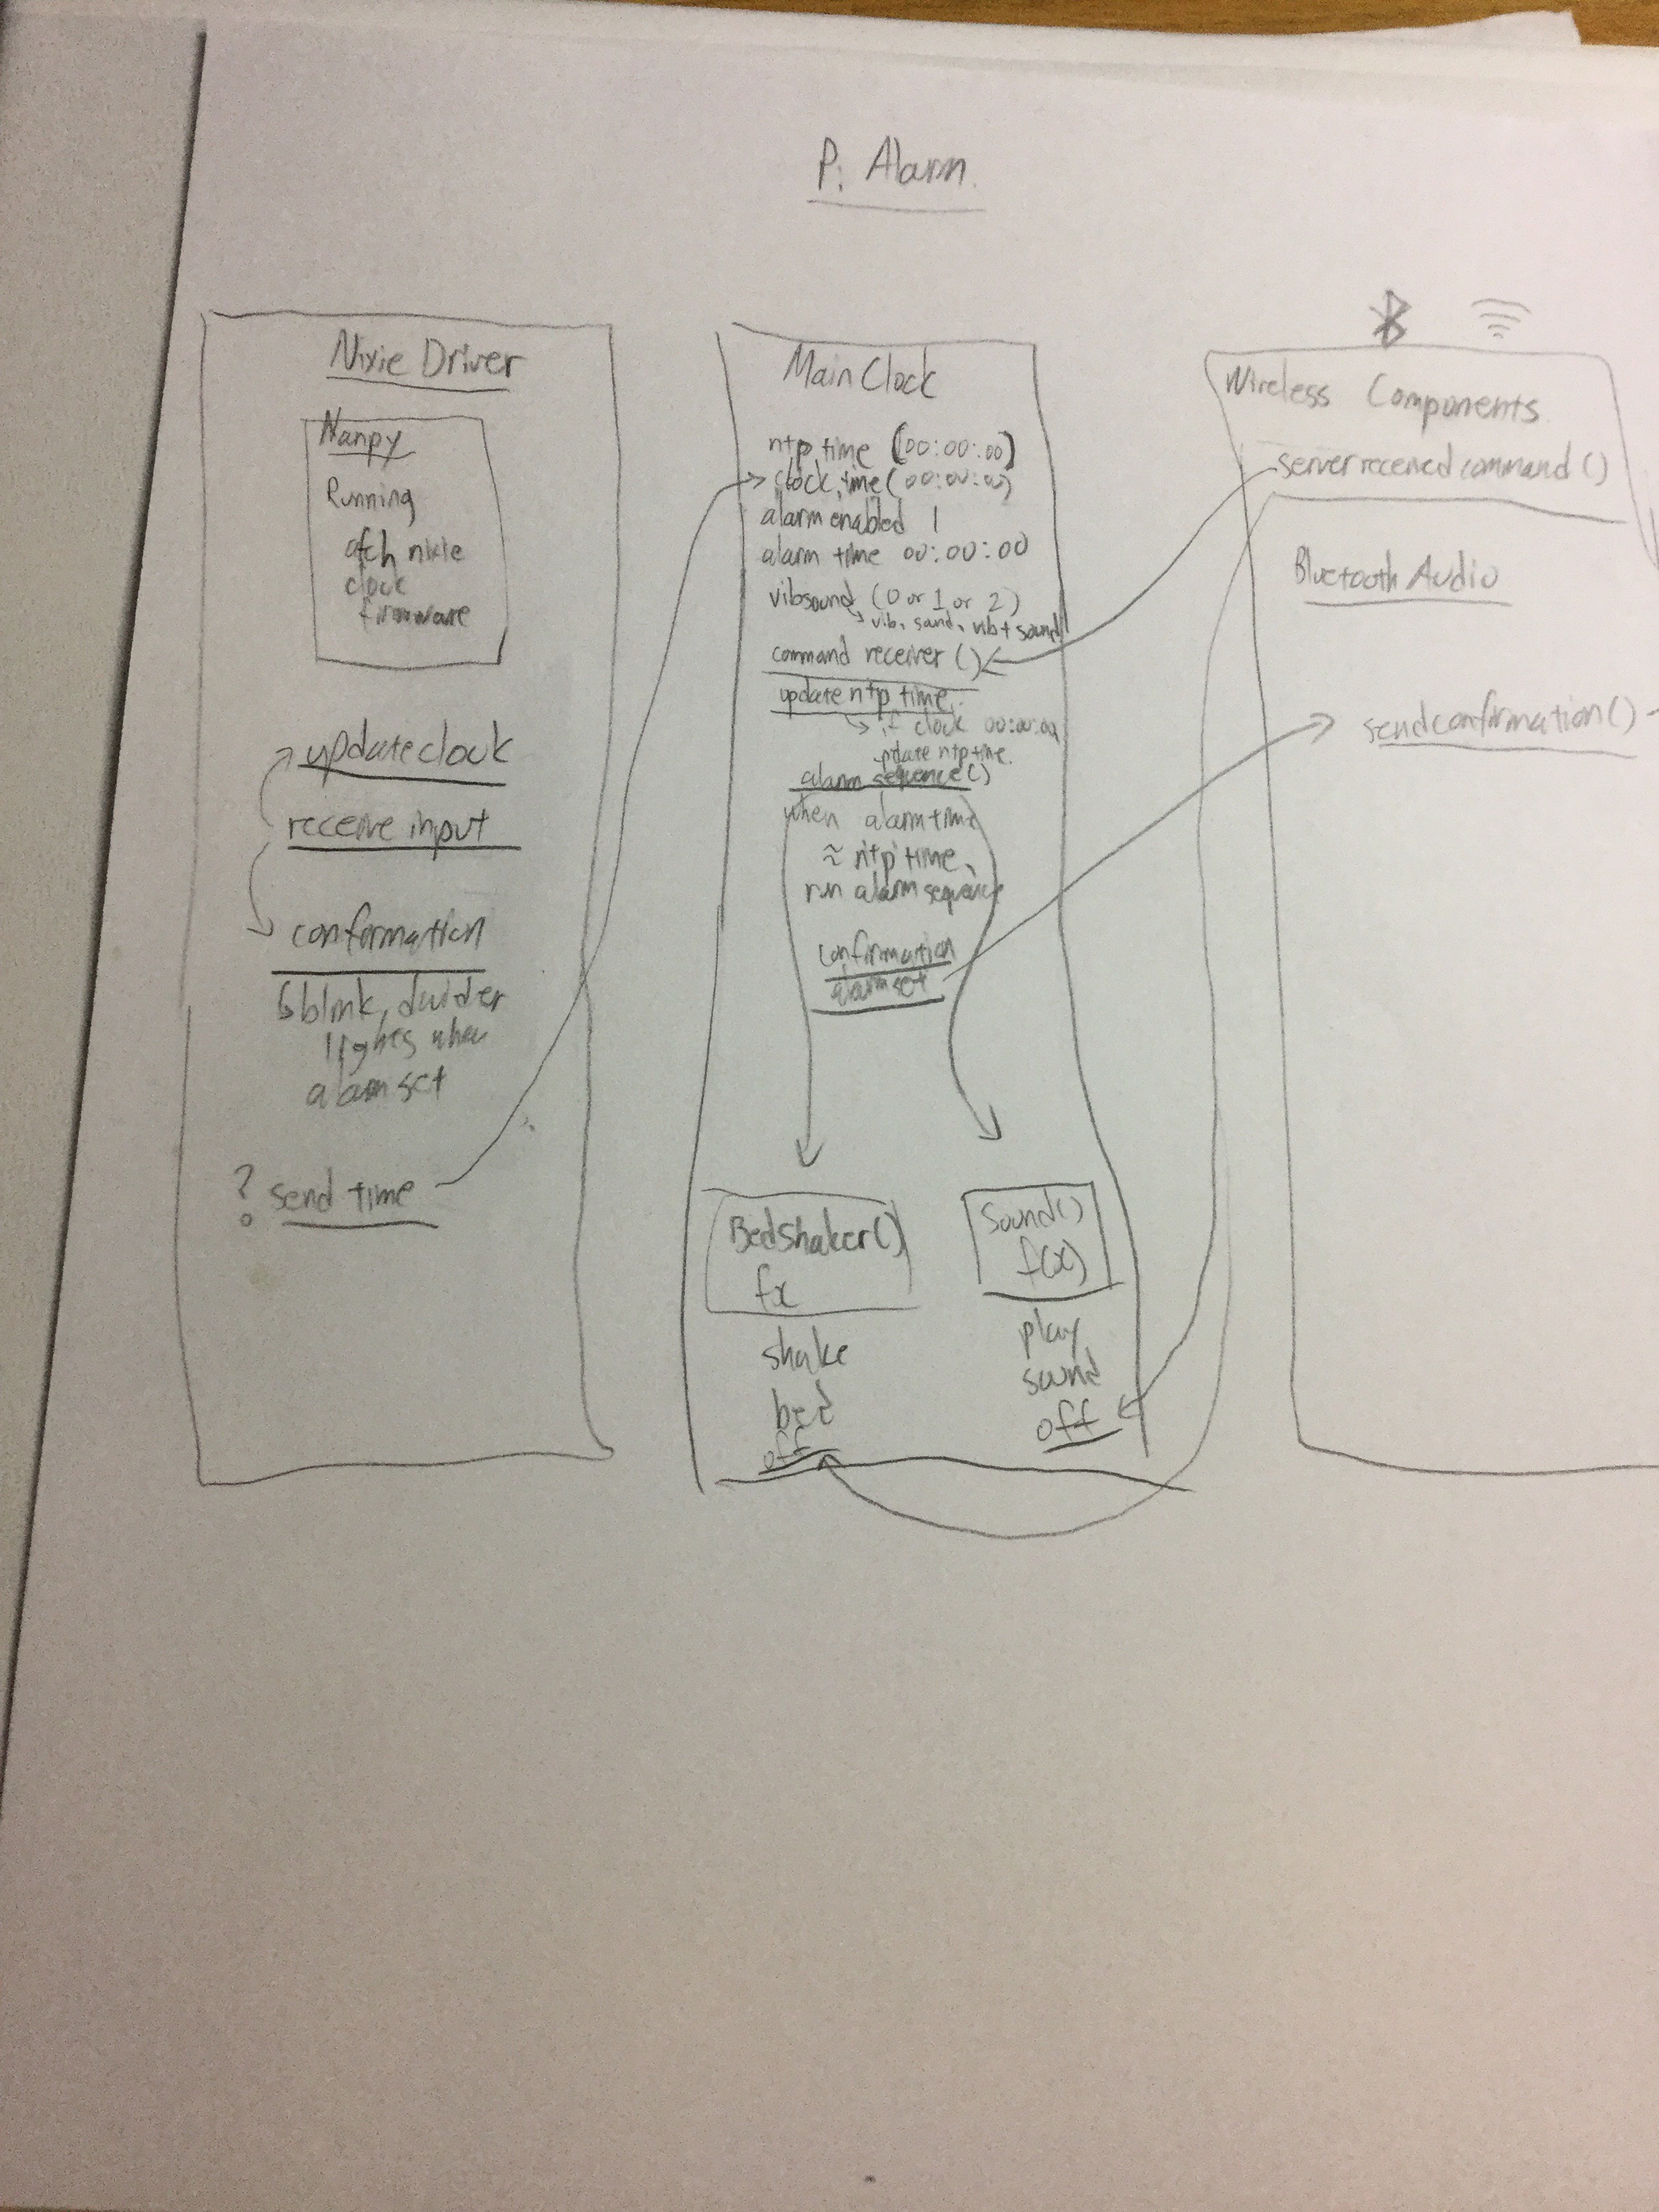 Pi Alarm
Nixie Driver
Nanpy
Running
afch nixie
clock
firmware
update clock
receive input
confirmation
blink divider
lights when
alarm set
? send time
Main Clock
ntp time (00:00:00)
clock time (00:00:00)
alarm enabled 1
alarm time 00:00:00
vibsound (0 or 1 or 2)
vib, sound, vib+sound
command receiver ()
update ntp time
if clock 00:00:00
update ntp time.
alarm sequence()
when alarm time
≈ ntp time,
run alarm sequence
confirmation
alarm set
BedShaker()
fx
shake
bed
off
Sound()
f(x)
play
sound
off
Wireless Components
server received command ()
Bluetooth Audio
send confirmation()